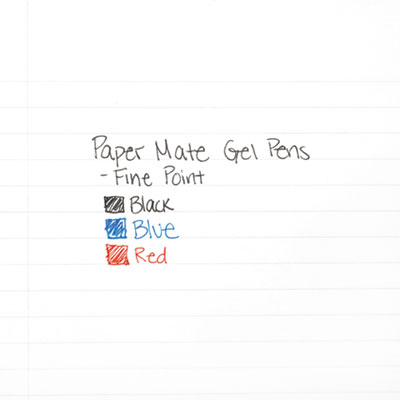 Paper Mate Gel Pens
- Fine Point
Black
Blue
Red